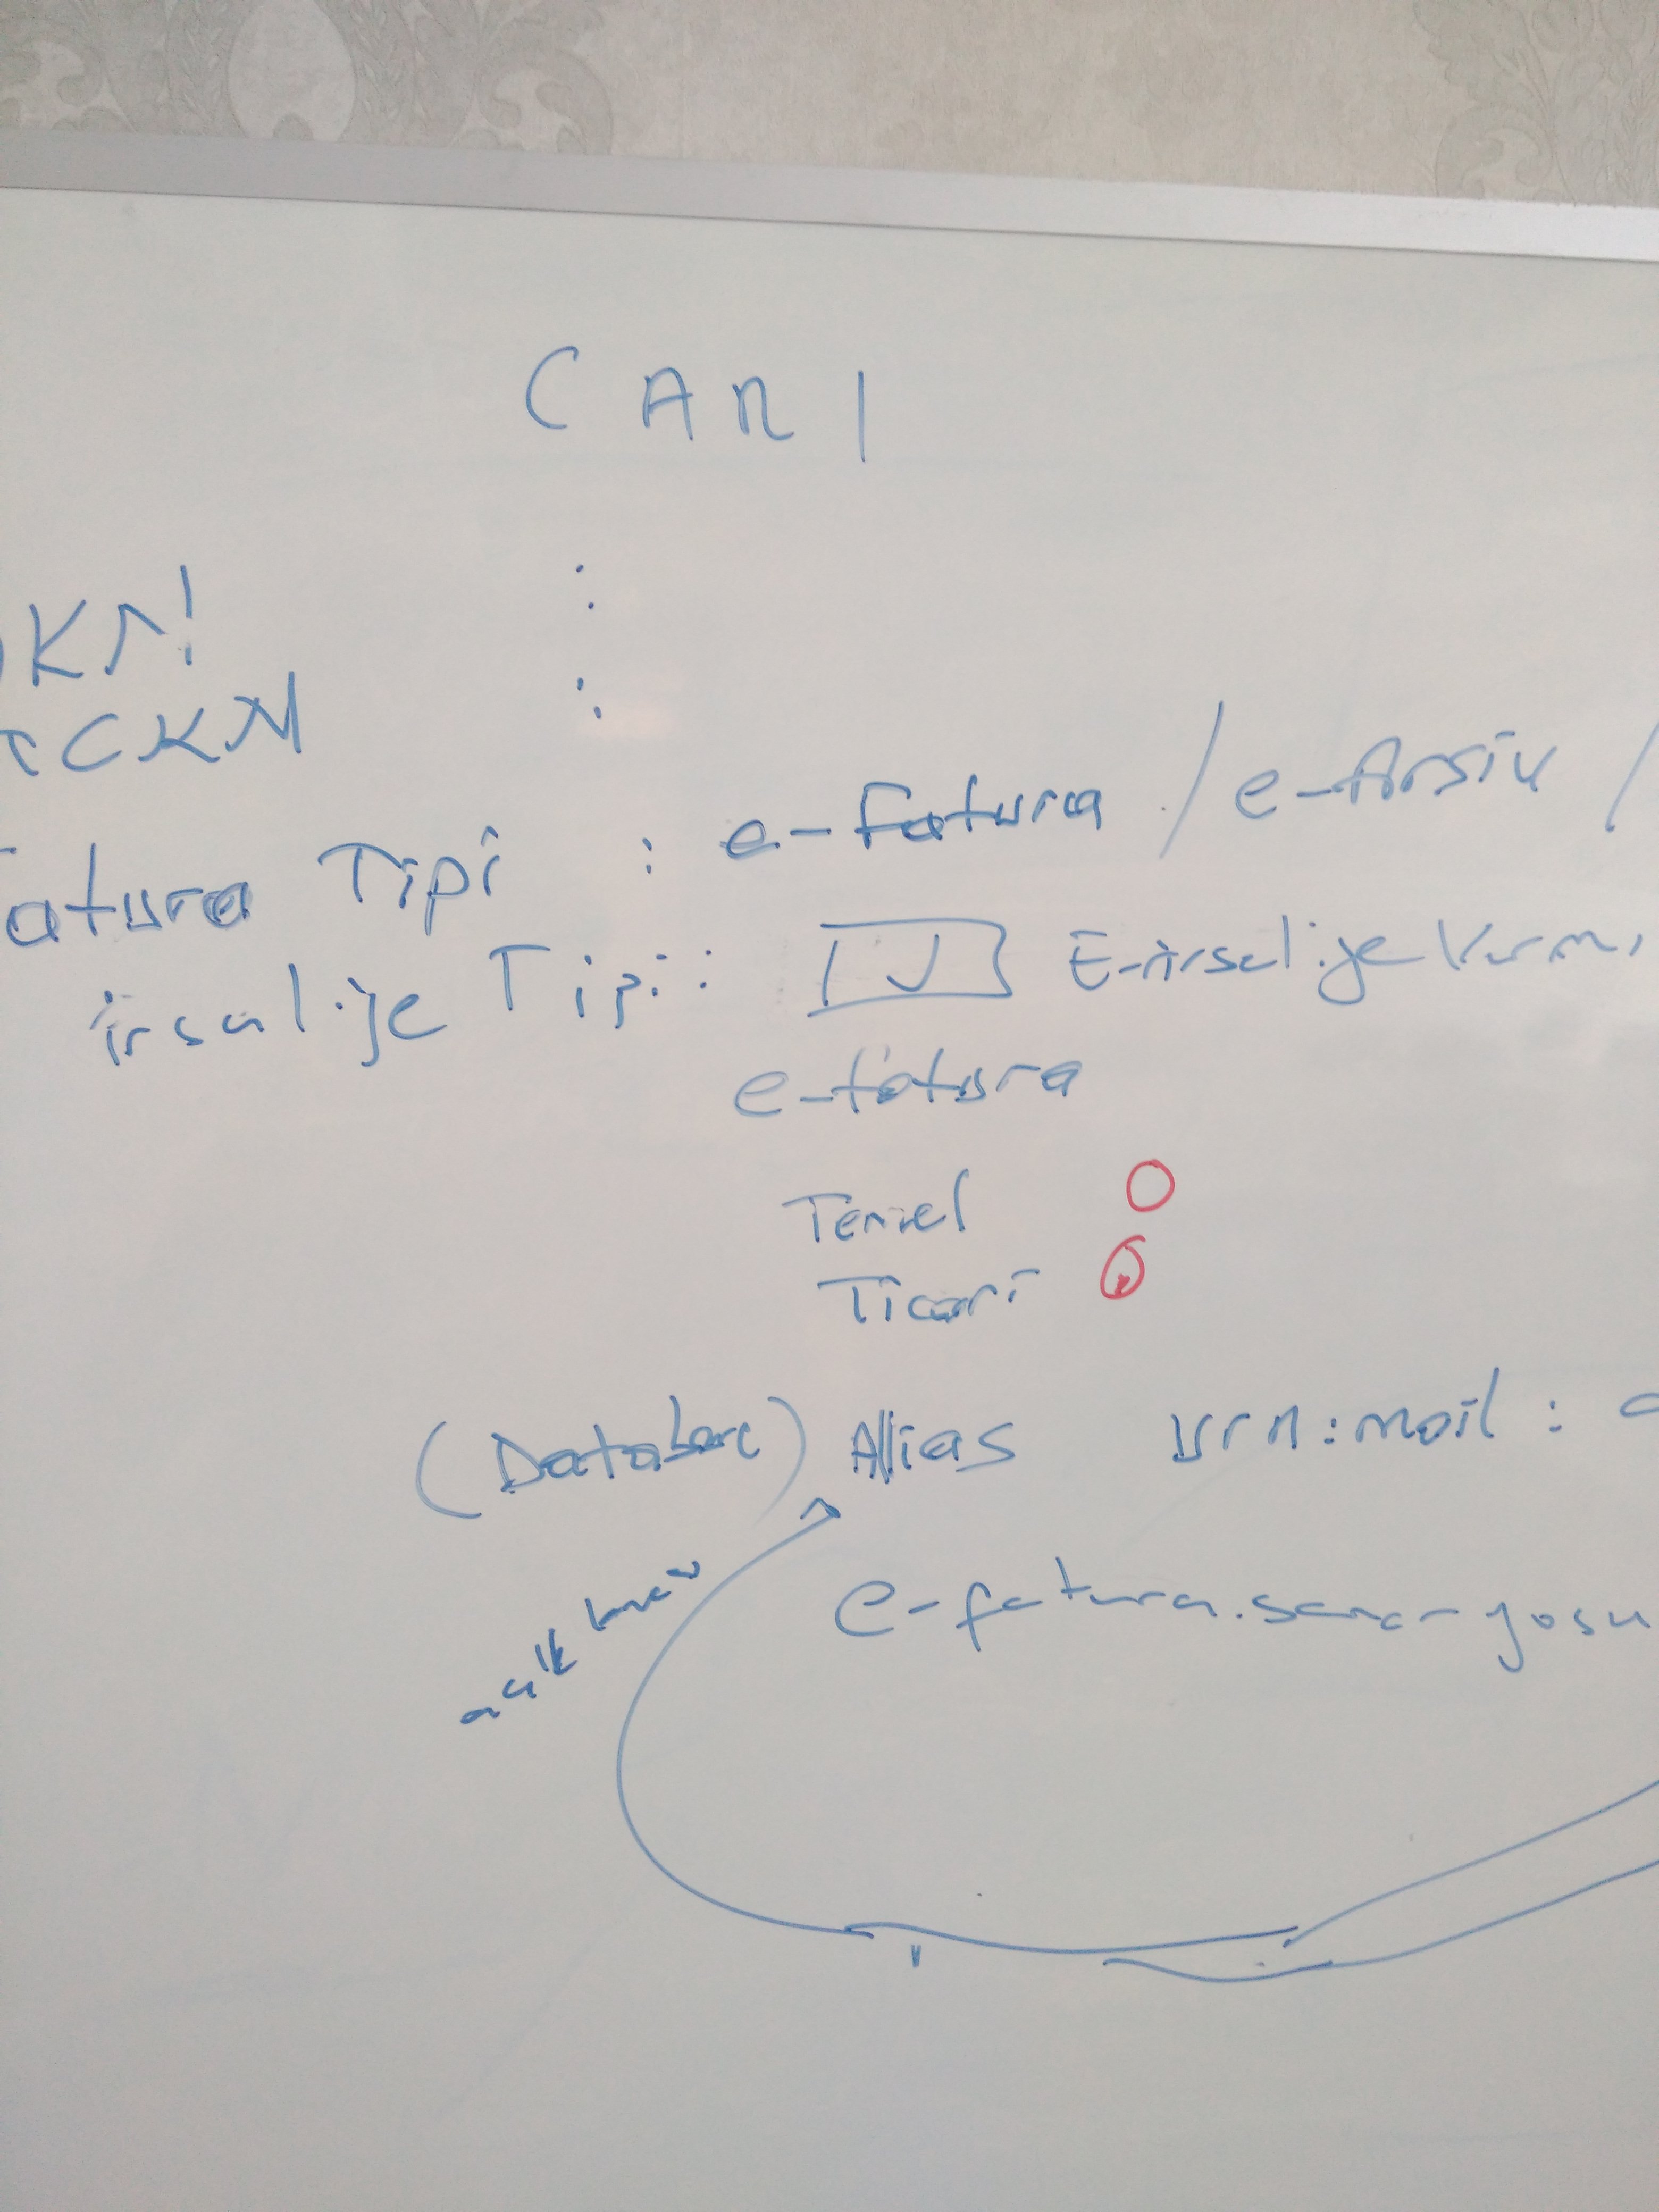 CARI
VKN :
TCKN :
Fatura Tipi : e-fatura / e-Arsiv /
irsaliye Tipi : E-irsaliye
e-fatura
Temel
Ticari
(Database) Alias urn:mail:
e-fatura.senaryosu